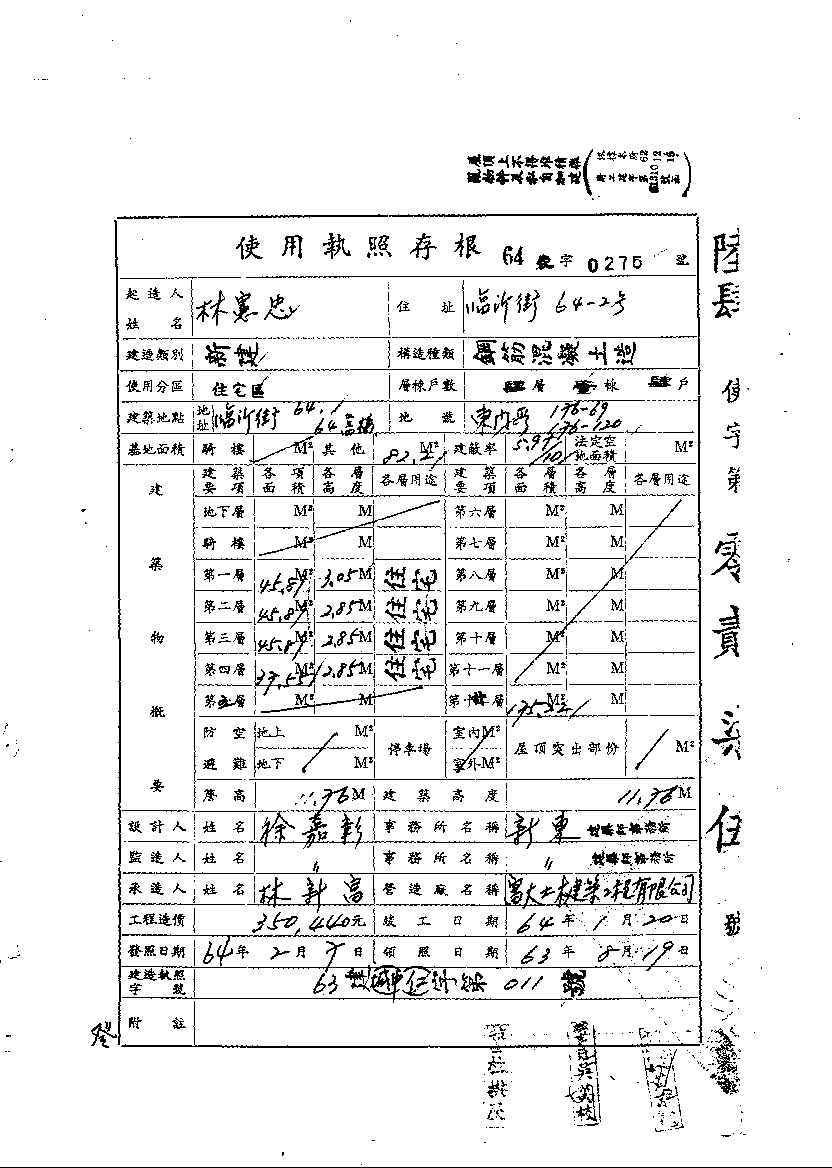 屋頂上不得堆積雜
使用執照存根 64 使字 0275 號
起造人姓名 林憲忠 住址 臨沂街 64-2号
建造類別 新建 構造種類 鋼筋混凝土造
使用分區 住宅區 層棟戶數 層 棟 戶
建築地點 地址 臨沂街 64 地號 176-69 176-120
基地面積 騎樓 M² 其他 M² 建蔽率 法定空地面積 M²
建築物概要
建築要項 各項面積 各層高度 各層用途 建築要項 各層面積 各層高度 各層用途
地下層 M² M 第六層 M² M
騎樓 M² M 第七層 M² M
第一層 45.87 M² 3.05 M 住宅 第八層 M² M
第二層 45.87 M² 2.85 M 住宅 第九層 M² M
第三層 45.87 M² 2.85 M 住宅 第十層 M² M
第四層 M² 2.85 M 住宅 第十一層 M² M
第五層 M² M 層 M² M
防空避難 地上 M² 地下 停車場 室內 M² 室外 M² 屋頂突出部份 M²
簷高 11.76 M 建築高度 11.76 M
設計人 姓名 徐嘉彰 事務所名稱 新東 建築師事務所
監造人 姓名 〃 事務所名稱 〃 建築師事務所
承造人 姓名 林新富 營造廠名稱 富大土木建築工程有限公司
工程造價 350,440元 竣工日期 64年1月20日
發照日期 64年2月7日 領照日期 63年8月19日
建造執照字號 63 011 號
附註
陸肆 使字第 零貳柒伍 號